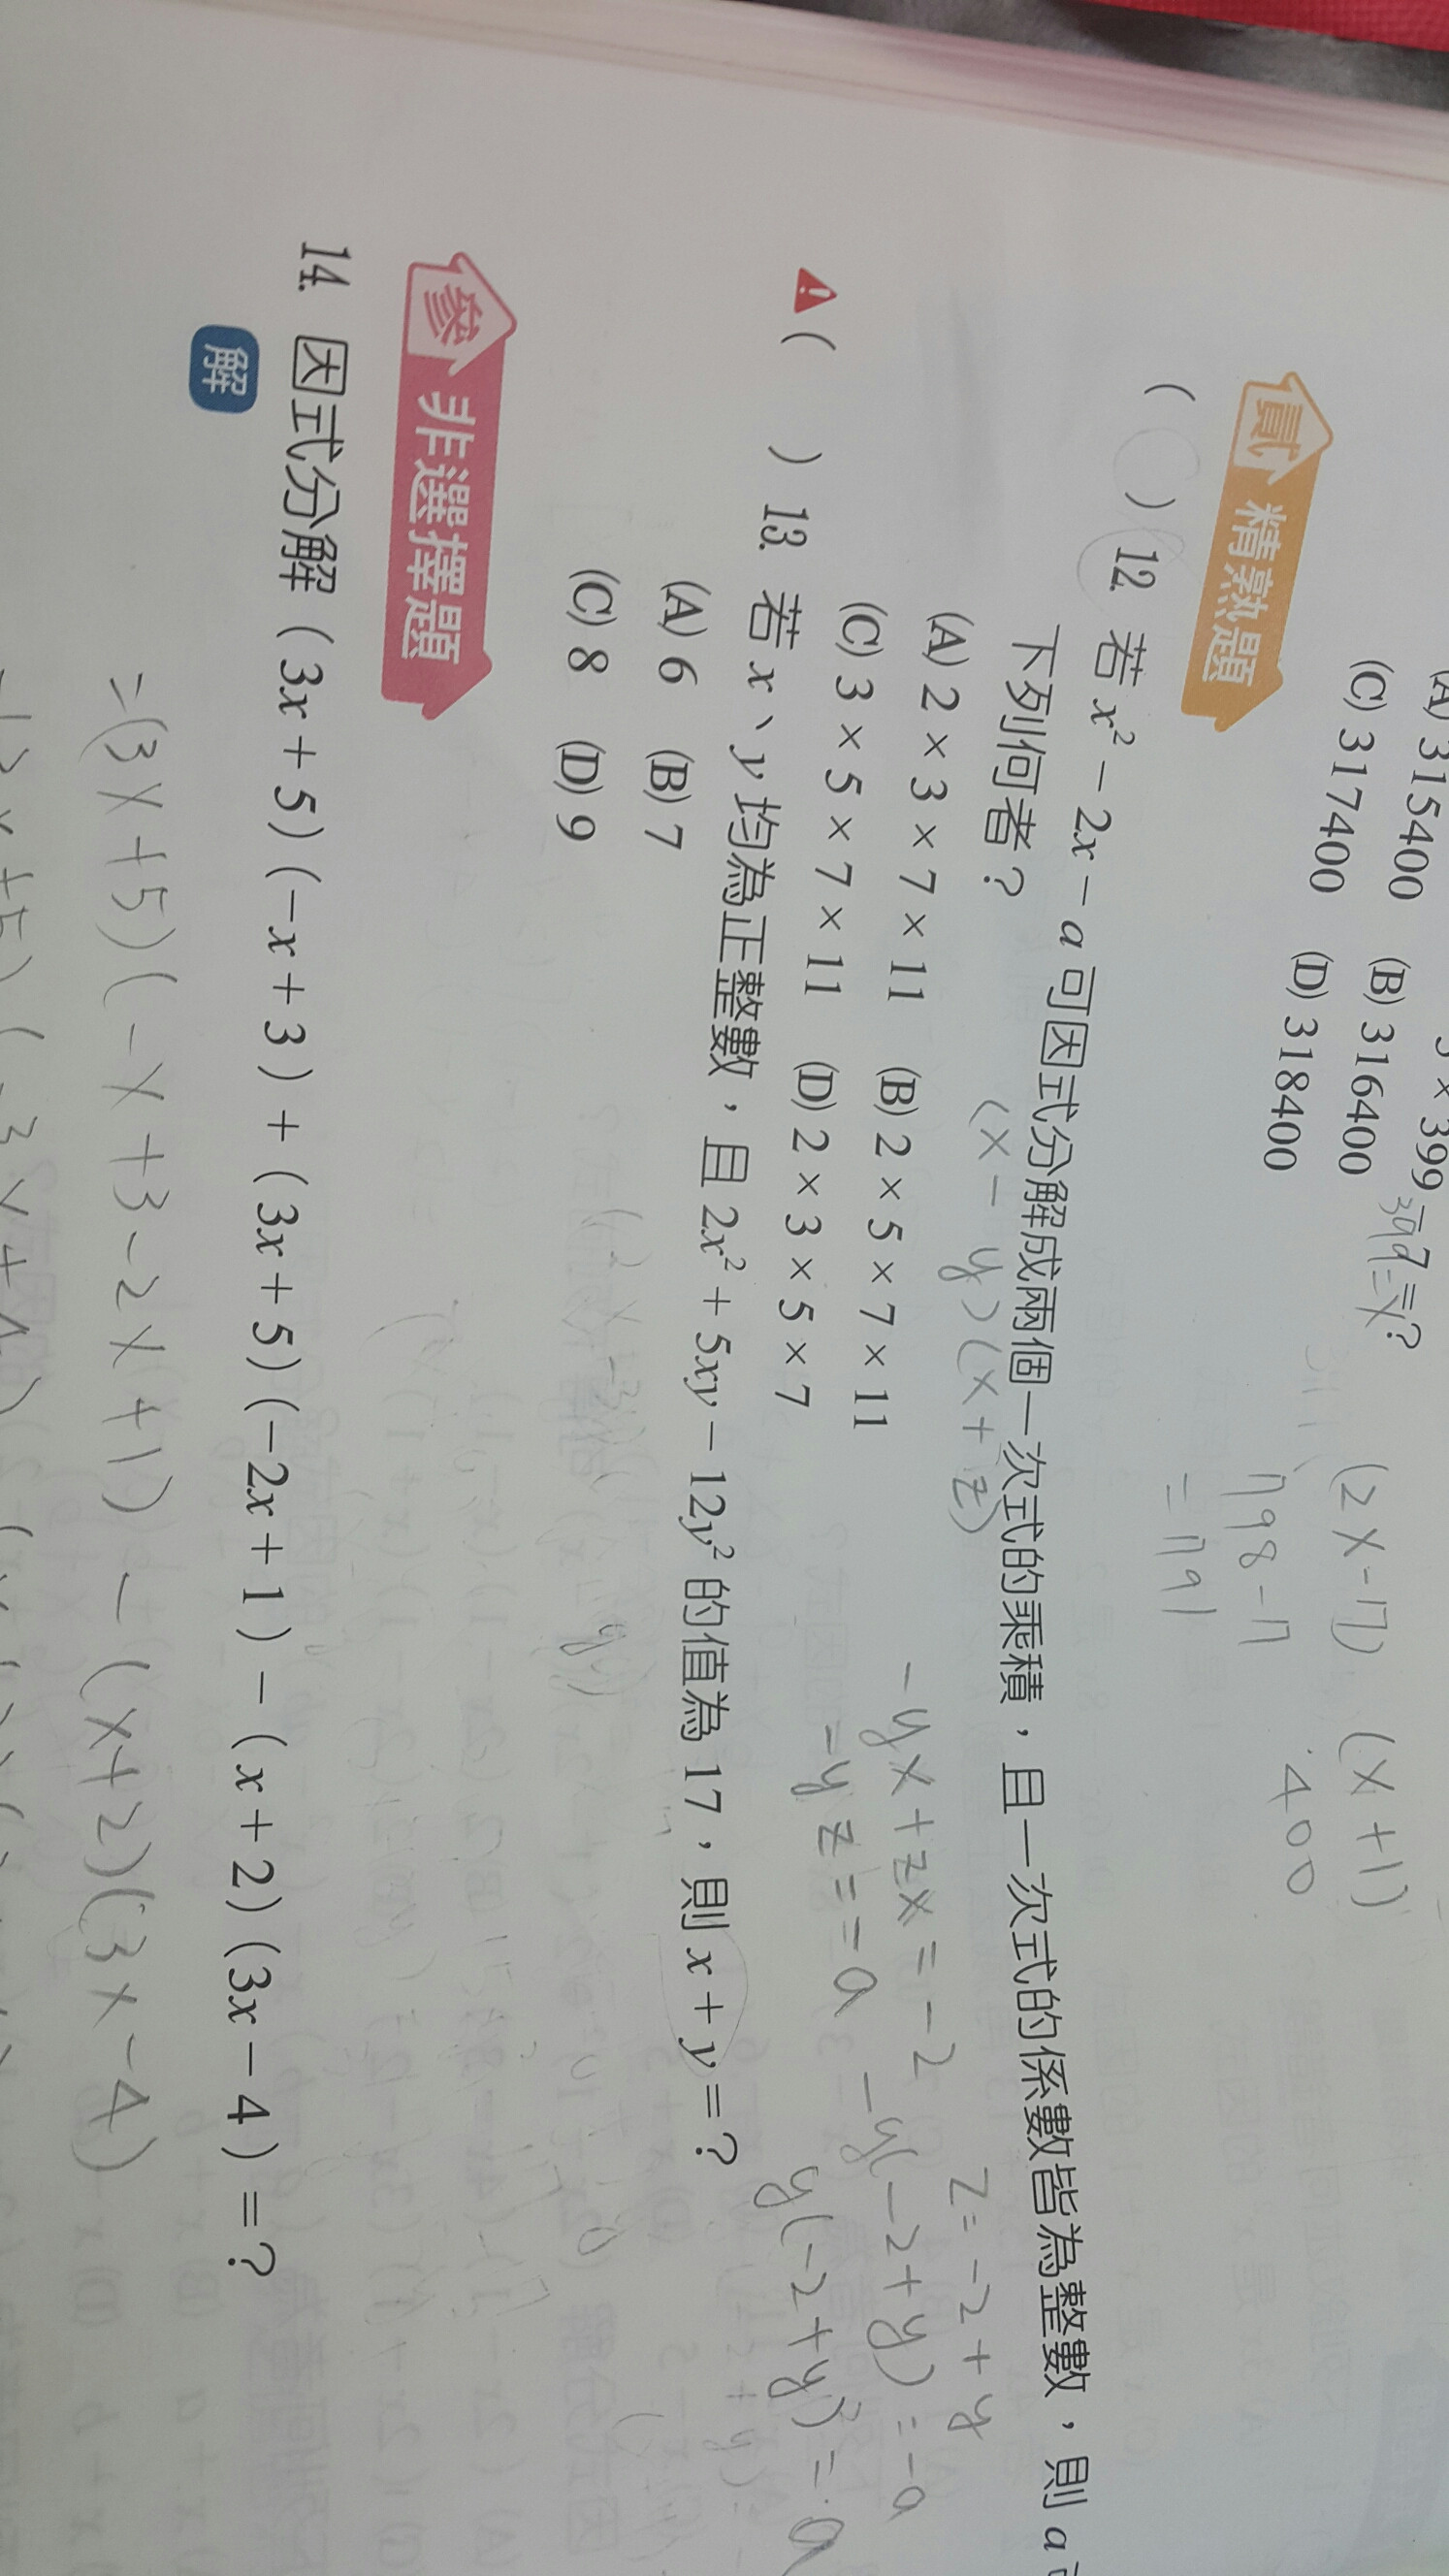 5 × 399
(A) 315400 (B) 316400
(C) 317400 (D) 318400
(2x-17) (x+1)
798-17 400
貳 精熟題
( ) 12. 若 x² − 2x − a 可因式分解成兩個一次式的乘積，且一次式的係數皆為整數，則 a
下列何者？
(x-y)(x+z)
(A) 2 × 3 × 7 × 11 (B) 2 × 5 × 7 × 11
(C) 3 × 5 × 7 × 11 (D) 2 × 3 × 5 × 7
-yx+zx=-2
z=-2+y
-y(-2+y)=-a
( ) 13. 若 x、y 均為正整數，且 2x² + 5xy − 12y² 的值為 17，則 x + y = ？
(A) 6 (B) 7
(C) 8 (D) 9
參 非選擇題
14. 因式分解 (3x + 5)(−x + 3) + (3x + 5)(−2x + 1) − (x + 2)(3x − 4) = ？
解
=(3x+5)(-x+3-2x+1)-(x+2)(3x-4)